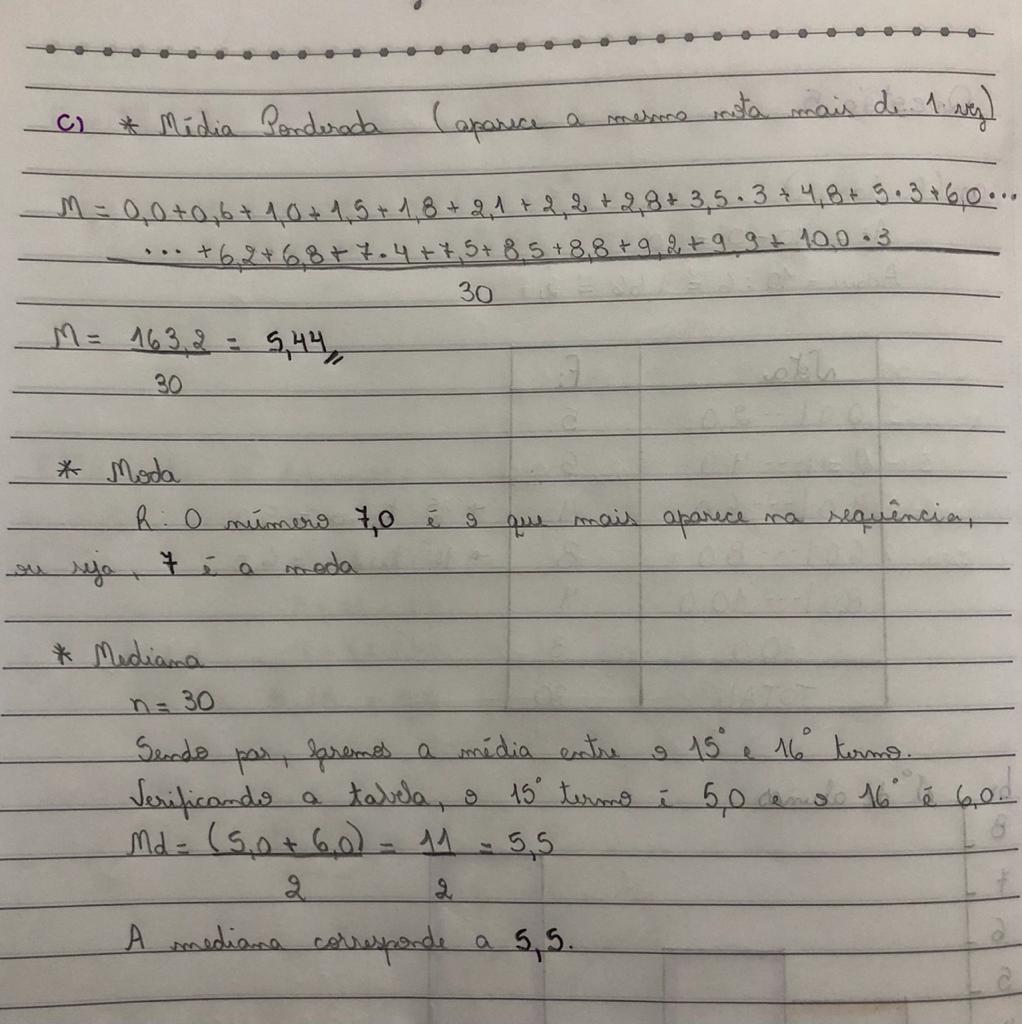 C) * Média Ponderada (aparece a mesma nota mais de 1 vez)
M = 0,0+0,6+1,0+1,5+1,8+2,1+2,2+2,8+3,5·3+4,8+5·3+6,0...
...+6,2+6,8+7·4+7,5+8,5+8,8+9,2+9,9+10,0·3
30
M = 163,2 = 5,44
30
* Moda
R: O número 7,0 é o que mais aparece na sequência,
ou seja, 7 é a moda
* Mediana
n = 30
Sendo par, faremos a média entre o 15° e 16° termo.
Verificando a tabela, o 15° termo é 5,0 e o 16° é 6,0.
Md = (5,0 + 6,0) = 11 = 5,5
2 2
A mediana corresponde a 5,5.